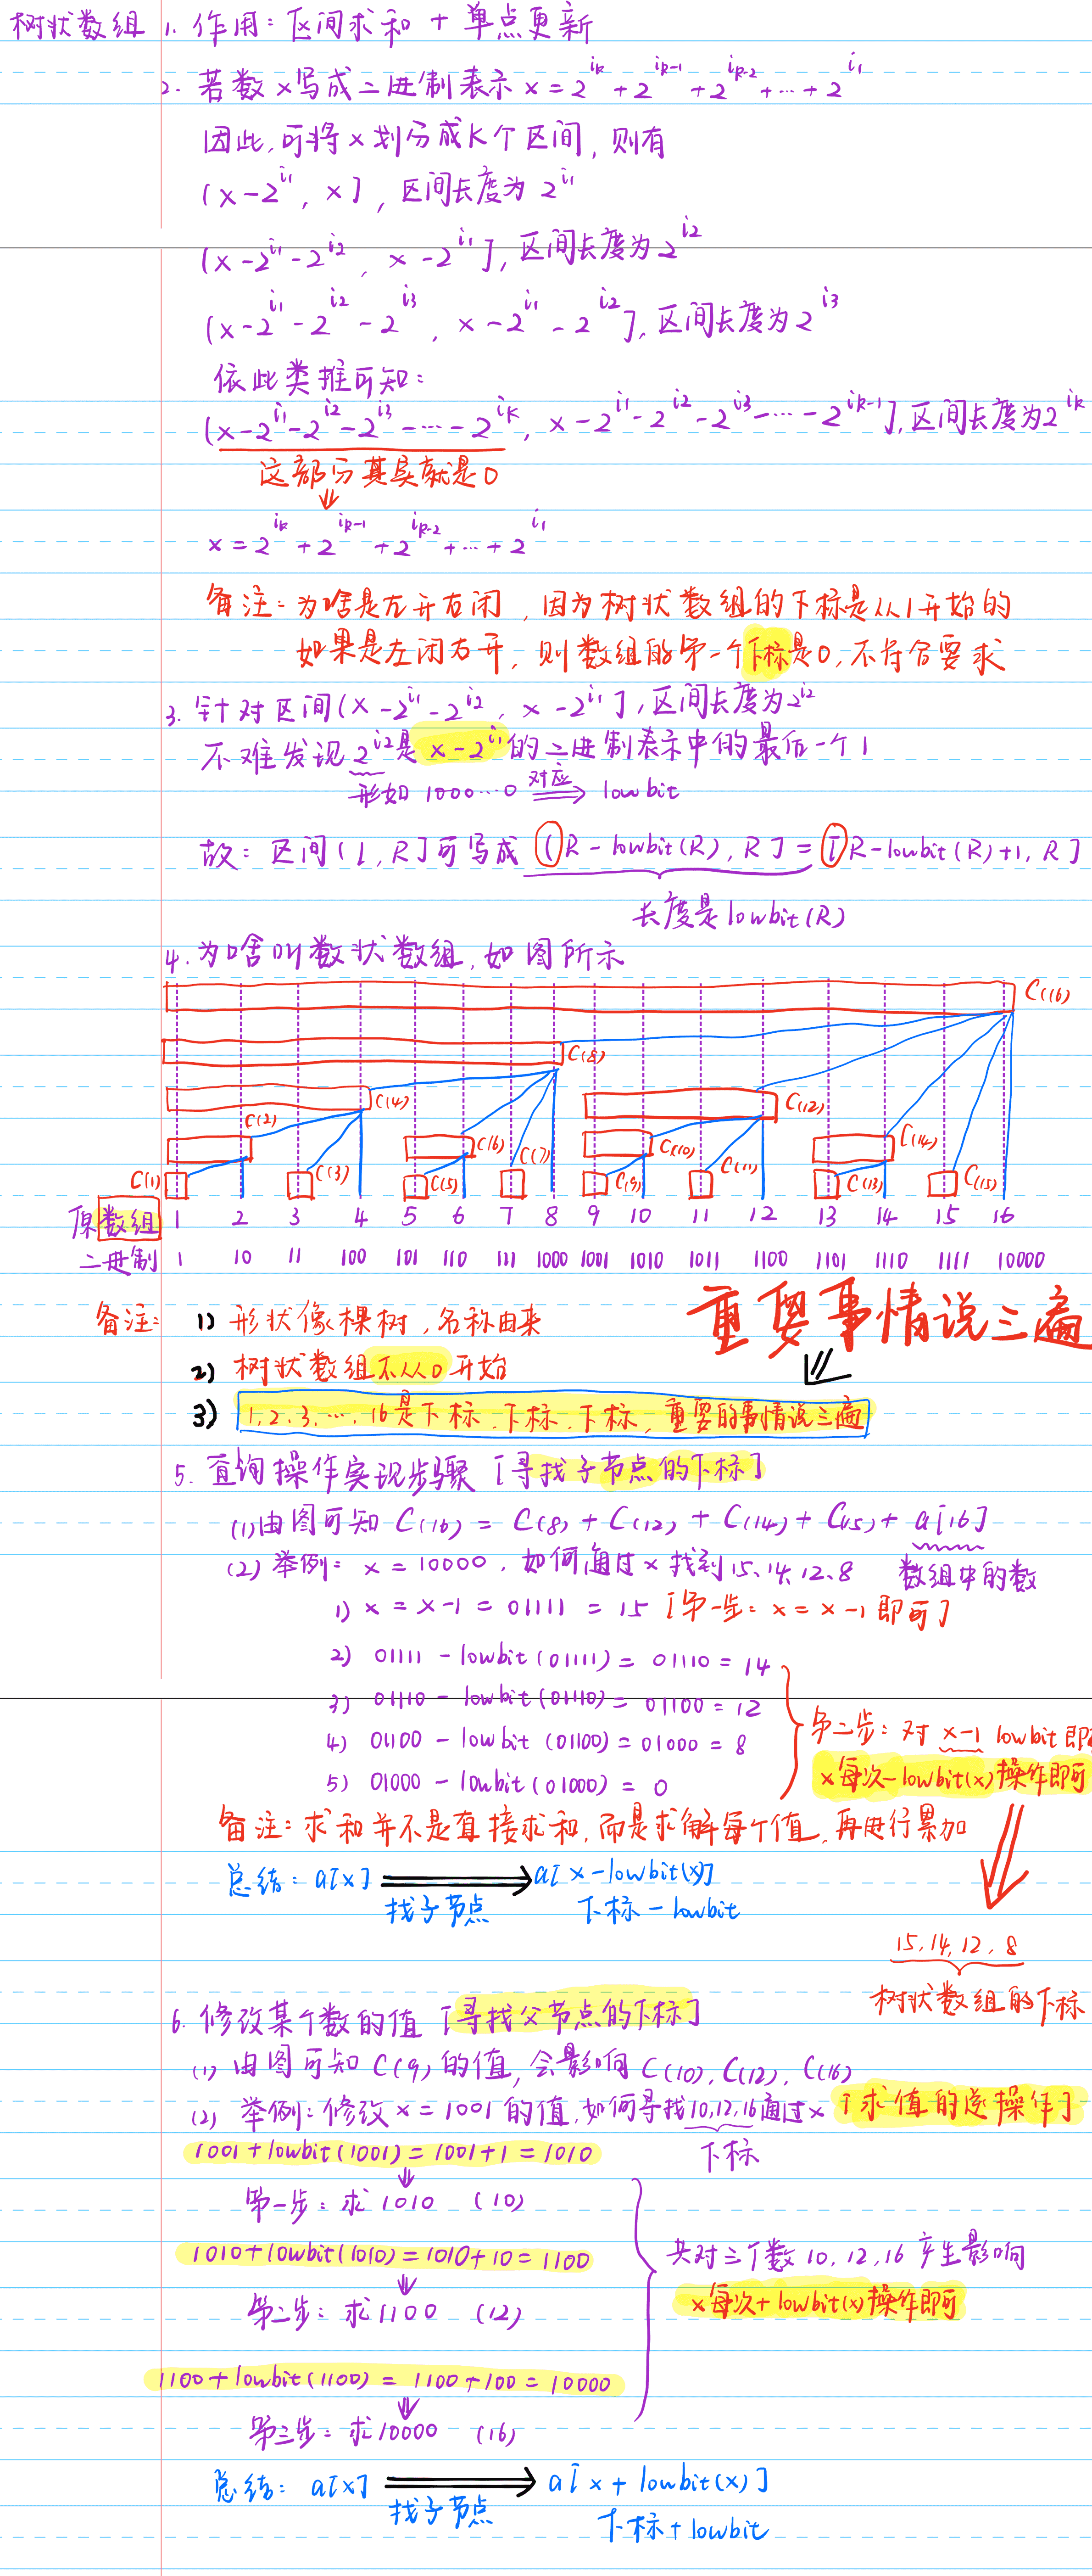 树状数组 1. 作用: 区间求和 + 单点更新
2. 若数x写成二进制表示 x = 2^{ik} + 2^{ik-1} + 2^{ik-2} + … + 2^{i1}
因此,可将x划分成k个区间,则有
(x-2^{i1}, x], 区间长度为 2^{i1}
(x-2^{i1}-2^{i2}, x-2^{i1}], 区间长度为 2^{i2}
(x-2^{i1}-2^{i2}-2^{i3}, x-2^{i1}-2^{i2}], 区间长度为 2^{i3}
依此类推可知:
(x-2^{i1}-2^{i2}-2^{i3}-…-2^{ik}, x-2^{i1}-2^{i2}-2^{i3}-…-2^{ik-1}], 区间长度为2^{ik}
这部分其实就是0
x = 2^{ik} + 2^{ik-1} + 2^{ik-2} + … + 2^{i1}
备注: 为啥是左开右闭, 因为树状数组的下标是从1开始的
如果是左闭右开, 则数组的第一个下标是0, 不符合要求
3. 针对区间(x-2^{i1}-2^{i2}, x-2^{i1}], 区间长度为2^{i2}
不难发现 2^{i2}是 x-2^{i1}的二进制表示中的最后一个1
形如 1000…0 对应⟹ lowbit
故: 区间(L, R]可写成 (R-lowbit(R), R] = [R-lowbit(R)+1, R]
长度是lowbit(R)
4. 为啥叫数状数组, 如图所示
C(16)
C(8)
C(4) C(12)
C(2) C(6) C(10) C(14)
C(1) C(3) C(5) C(7) C(9) C(11) C(13) C(15)
原数组 1 2 3 4 5 6 7 8 9 10 11 12 13 14 15 16
二进制 1 10 11 100 101 110 111 1000 1001 1010 1011 1100 1101 1110 1111 10000
重要事情说三遍
备注: 1) 形状像棵树, 名称由来
2) 树状数组不从0开始
3) 1,2,3,…,16是下标、下标、下标, 重要的事情说三遍
5. 查询操作实现步骤 [寻找子节点的下标]
(1) 由图可知 C(16) = C(8) + C(12) + C(14) + C(15) + a[16]
数组中的数
(2) 举例: x = 10000, 如何通过x找到15、14、12、8
1) x = x-1 = 01111 = 15 [第一步: x = x-1 即可]
2) 01111 - lowbit(01111) = 01110 = 14
3) 01110 - lowbit(01110) = 01100 = 12
4) 01100 - lowbit(01100) = 01000 = 8
5) 01000 - lowbit(01000) = 0
第二步: 对 x-1 lowbit 即
x每次-lowbit(x)操作即可
备注: 求和并不是直接求和, 而是求解每个值, 再进行累加
总结: a[x] ⟹ a[x-lowbit(x)]
找子节点 下标-lowbit
15, 14, 12, 8
树状数组的下标
6. 修改某个数的值 [寻找父节点的下标]
(1) 由图可知 C(9)的值, 会影响 C(10), C(12), C(16)
(2) 举例: 修改x=1001的值, 如何寻找10,12,16通过x [求值的逆操作]
下标
1001+lowbit(1001)=1001+1=1010
第一步: 求1010 (10)
1010+lowbit(1010)=1010+10=1100
第二步: 求1100 (12)
1100+lowbit(1100) = 1100+100=10000
第三步: 求10000 (16)
共对三个数10,12,16产生影响
x每次+lowbit(x)操作即可
总结: a[x] ⟹ a[x+lowbit(x)]
找子节点 下标+lowbit